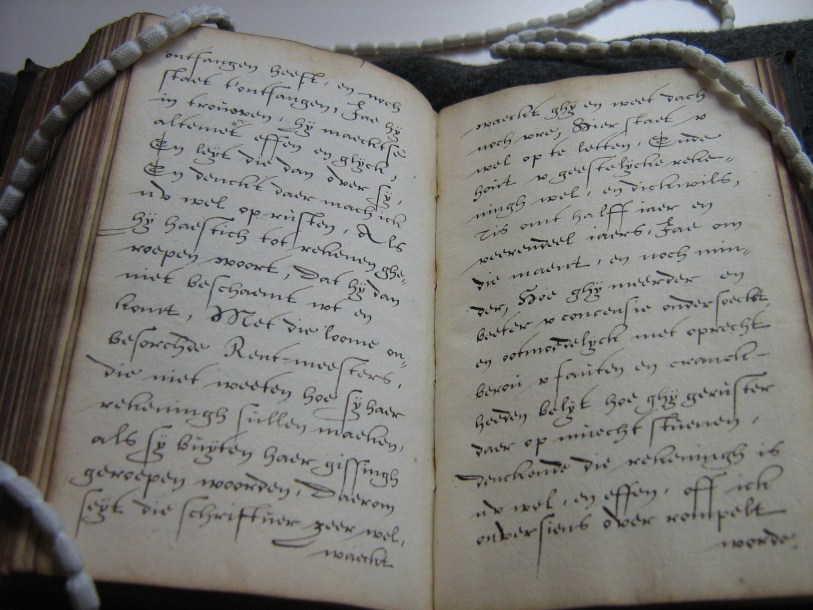 ontfangen heeft, en noch
staet t'ontfangen, Jae hy
in trouwen, hy maeckt se
altemet effen en glyck,
En leyt die dan over sy,
En denckt daer mach ick
nv wel op rusten, Als
hy haestich tot rekenen ghe-
roepen woort, Dat hy dan
niet beschaemt wt en
komt, Met die loome on-
besorchde Rent-meesters,
die niet weeten hoe sy haer
rekeningh sullen maeken,
als sy buyten haer gissingh
geroepen woorden, Daerom
seyt die schriftuer zeer wel,
waeckt
waeckt ghy en weet dach
noch vre, Hier staet v
wel op te letten, Ende
hout v geestelycke reke-
ningh wel, en dickwils,
Tis om't halff iaer en
veerendeel iaers, Jae om
die maent, en noch min-
der, Hoe ghy meerder en
beeter v concensie ondersoeckt,
en ootmoedelyck met oprecht
berou v fauten en cranck-
heeden belyt hoe ghy geruster
daer op muecht stuenen,
Denckende die rekeningh is
nv wel, en effen, off ick
onversiens over rompelt
worde.